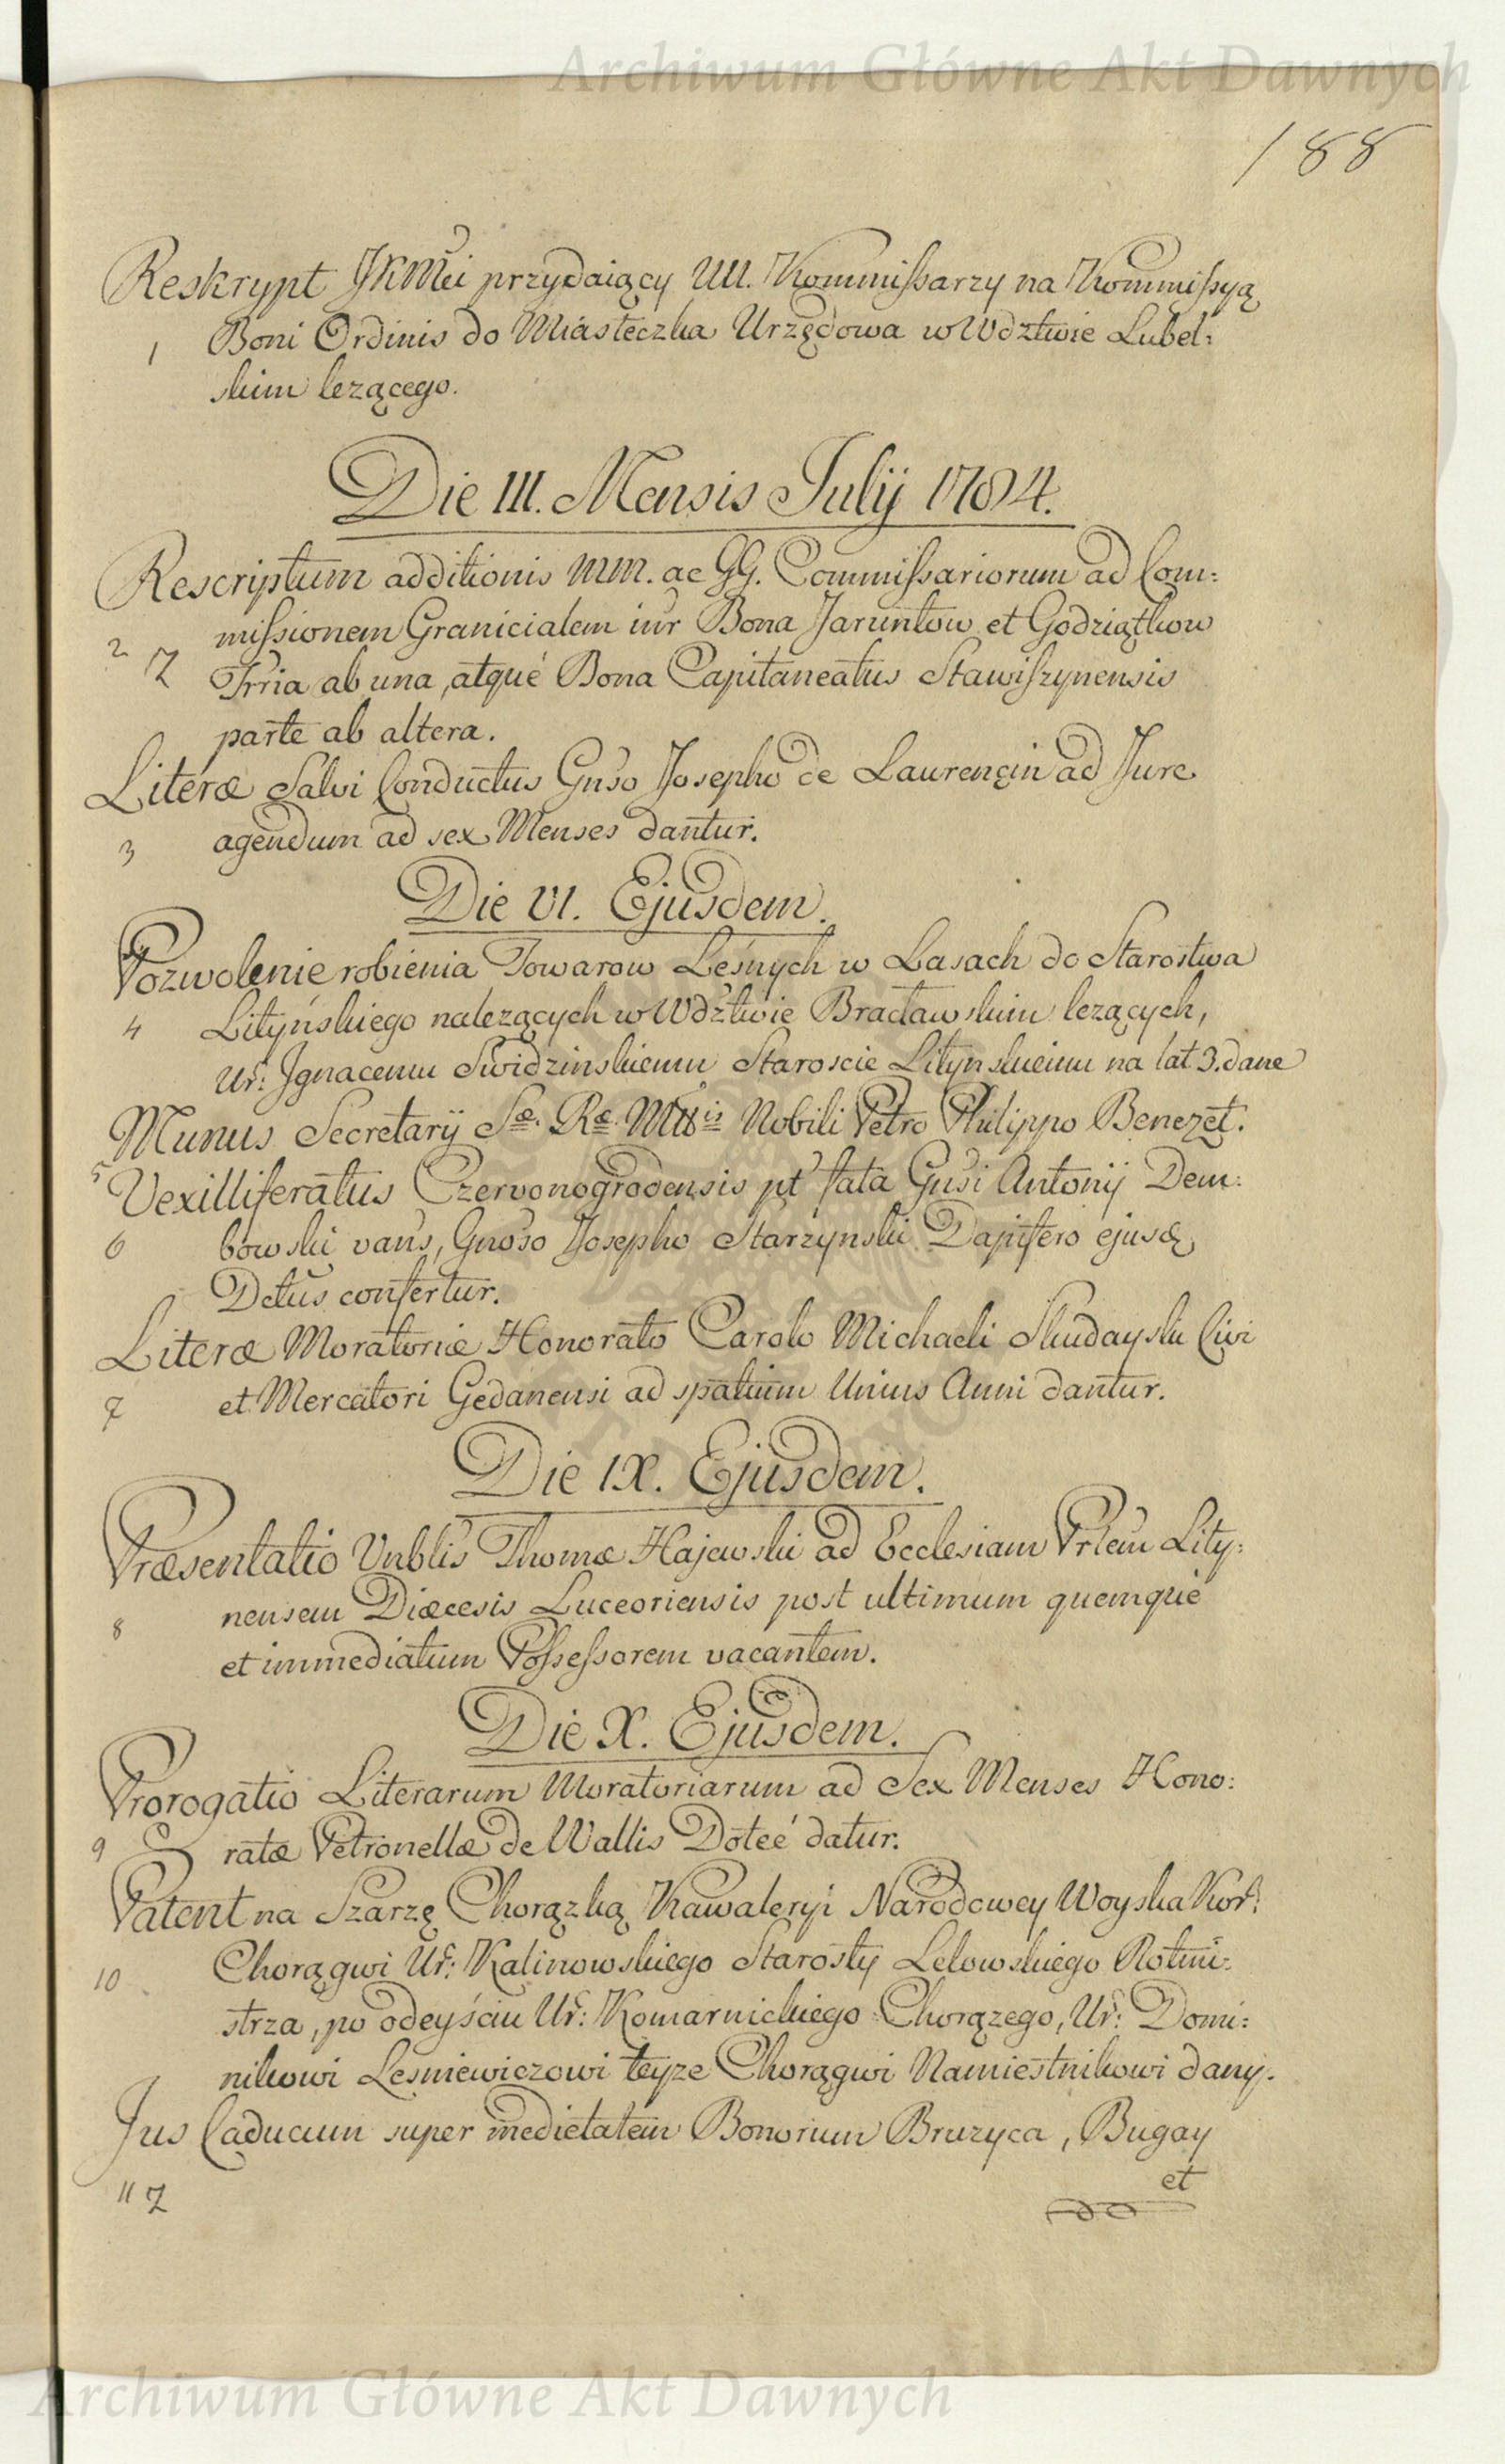 Archiwum Główne Akt Dawnych
188
Reskrypt JKMci przydaiący UU. Kommissarzy na Kommissyą
1 Boni Ordinis do Miasteczka Urzędowa w Wdztwie Lubel:
skim lezącego.
Die III. Mensis Julij 1784.
Rescriptum additionis MM. ac GG. Commissariorum ad Com:
2 missionem Granicialem intr Bona Jaruntow et Godziątkow
Trria ab una, atque Bona Capitaneatus Stawiszynensis
parte ab altera.
Literæ Salvi Conductus Gnso Josepho de Laurençin ad Jure
3 agendum ad sex Menses dantur.
Die VI. Ejusdem.
Pozwolenie robienia Towarow Leśnych w Lasach do Starostwa
4 Lityńskiego nalezących w Wdztwie Bracławskim lezących,
Ur: Jgnacemu Swidzinskiemu Staroscie Litynskiemu na lat 3. dane
Munus Secretarij Sæ. Ræ. Mttis Nobili Petro Philippo Benezet.
5 Vexilliferatus Czervonogrodensis pt fata Gnsi Antonij Dem:
6 bowski vans, Gnoso Josepho Starzynski Dapifero ejusd
Dctus confertur.
Literæ Moratoriæ Honorato Carolo Michaeli Skudayski Civi
7 et Mercatori Gedanensi ad spatium Unius Anni dantur.
Die IX. Ejusdem.
Præsentatio Vnblis Thomæ Hajewski ad Ecclesiam Prlem Lity:
8 nensem Diæcesis Luceoriensis post ultimum quemque
et immediatum Possessorem vacantem.
Die X. Ejusdem.
Prorogatio Literarum Moratoriarum ad Sex Menses Hono:
9 ratæ Petronellæ de Wallis Doteé datur.
Patent na Szarzę Chorązką Kawaleryi Narodowey Woyska Kor:
10 Chorągwi Ur: Kalinowskiego Starosty Lelowskiego Rotmi:
strza, po odeyściu Ur: Komarnickiego Chorązego, Ur: Domi:
nikowi Lesniewiczowi teyze Chorągwi Namiestnikowi dany.
Jus Caducum super medietatem Bonorum Bruzyca, Bugay
11 et
Archiwum Główne Akt Dawnych